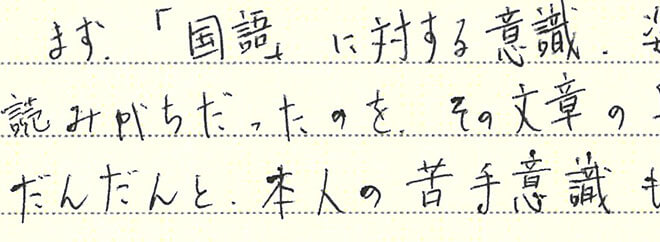 まず、「国語」に対する意識、
読みがちだったのを、その文章の
だんだんと、本人の苦手意識も